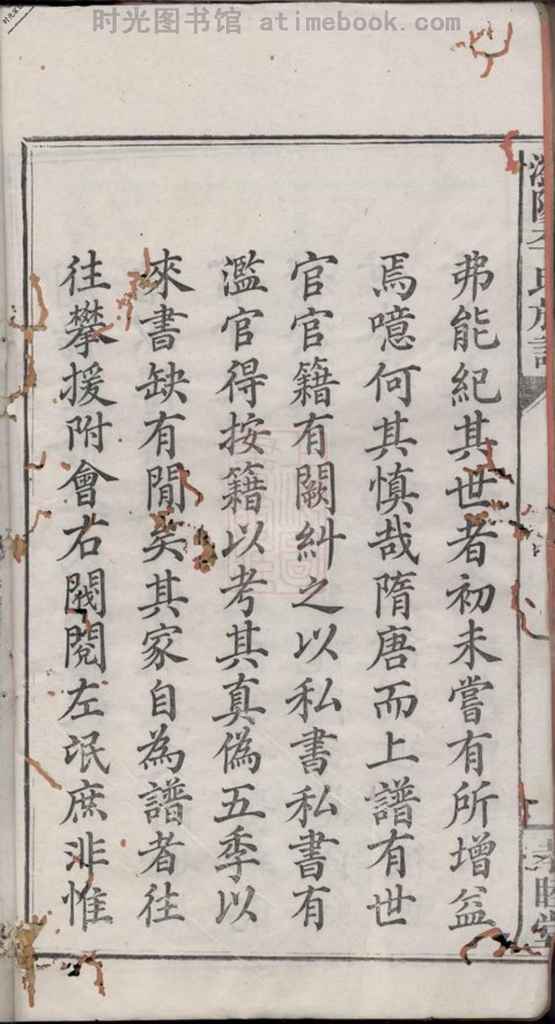 时光图书馆 atimebook.com
弗能紀其世者初未嘗有所增益
焉噫何其慎哉隋唐而上譜有世
官官籍有闕糾之以私書私書有
濫官得按籍以考其真偽五季以
來書缺有間矣其家自為譜者往
往攀援附會右閥閱左氓庶非惟
李氏族譜
睦堂